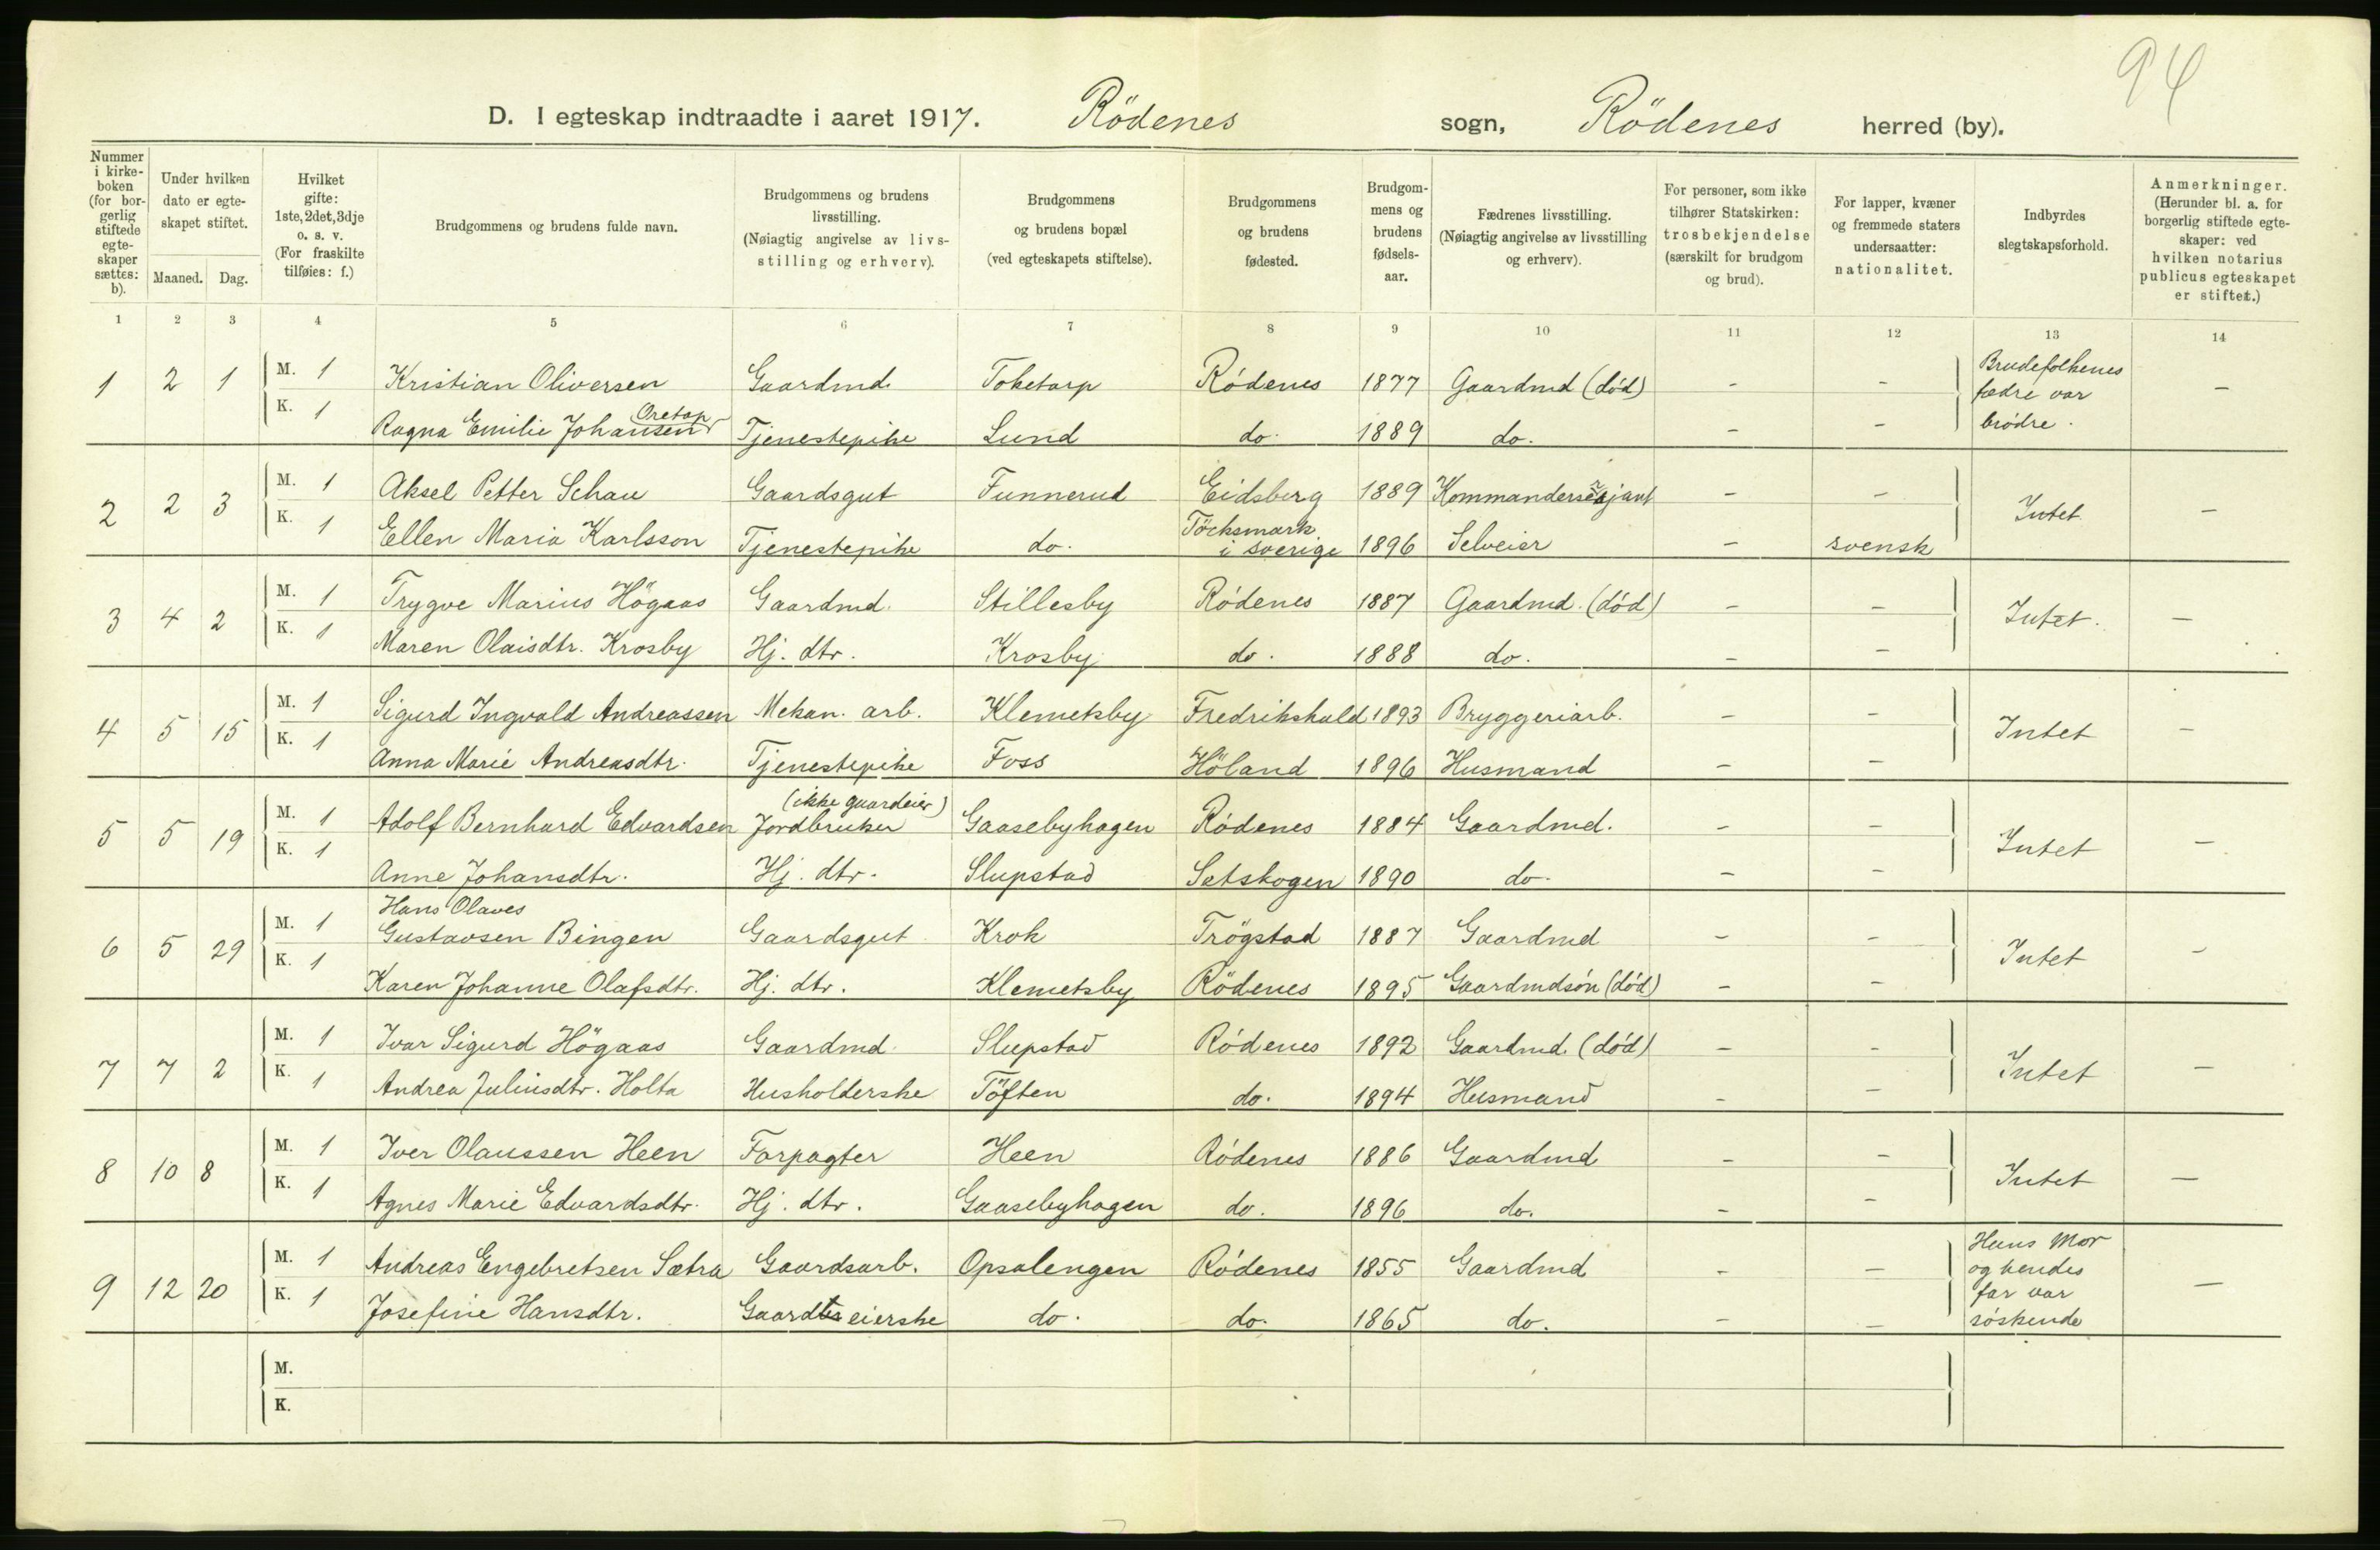 94
D. I egteskap indtraadte i aaret 1917. Rödenes sogn, Rödenes herred (by).
Nummer i kirkeboken (for borgerlig stiftede egteskaper sættes: b).
Under hvilken dato er egteskapet stiftet.
Maaned. Dag.
Hvilket gifte: 1ste, 2det, 3dje o. s. v. (For fraskilte tilføies: f.)
Brudgommens og brudens fulde navn.
Brudgommens og brudens livsstilling. (Nøiagtig angivelse av livsstilling og erhverv).
Brudgommens og brudens bopæl (ved egteskapets stiftelse).
Brudgommens og brudens fødested.
Brudgommens og brudens fødselsaar.
Fædrenes livsstilling. (Nøiagtig angivelse av livsstilling og erhverv).
For personer, som ikke tilhører Statskirken: trosbekjendelse (særskilt for brudgom og brud).
For lapper, kvæner og fremmede staters undersaatter: nationalitet.
Indbyrdes slegtskapsforhold.
Anmerkninger. (Herunder bl. a. for borgerlig stiftede egteskaper: ved hvilken notarius publicus egteskapet er stiftet.)
1 2 3 4 5 6 7 8 9 10 11 12 13 14
1 2 1 M. 1 Kristian Oliversen Gaardmd. Toketorp Rödenes 1877 Gaardmd (död) - - Brudefolkenes fædre var brödre. -
K. 1 Ragna Emilie Johansen Oretop Tjenestepike Lund do. 1889 do. - -
2 2 3 M. 1 Aksel Petter Schau Gaardsgut Funnerud Eidsberg 1889 Kommandersersjant - - Intet -
K. 1 Ellen Maria Karlsson Tjenestepike do. Töcksmark i Sverige 1896 Selveier - svensk
3 4 2 M. 1 Trygve Marius Högaas Gaardmd. Stillesby Rödenes 1887 Gaardmd. (död) - - Intet. -
K. 1 Maren Olaisdtr. Krosby Hj. dtr. Krosby do. 1888 do. - -
4 5 15 M. 1 Sigurd Ingvald Andreassen Mekan. arb. Klemetsby Fredrikshald 1893 Bryggeriarb. - - Intet -
K. 1 Anna Marie Andreasdtr. Tjenestepike Foss Höland 1896 Husmand - -
5 5 19 M. 1 Adolf Bernhard Edvardsen Jordbruker (ikke gaardeier) Gaasebyhagen Rödenes 1884 Gaardmd. - - Intet -
K. 1 Anne Johansdtr. Hj. dtr. Slupstad Setskogen 1890 do. - -
6 5 29 M. 1 Hans Olaves Gustavsen Bingen Gaardsgut Krok Trögstad 1887 Gaardmd - - Intet -
K. 1 Karen Johanne Olafsdtr. Hj. dtr. Klemetsby Rödenes 1895 Gaardmdsön (död) - -
7 7 2 M. 1 Ivar Sigurd Högaas Gaardmd. Slupstad Rödenes 1892 Gaardmd. (död) - - Intet -
K. 1 Andrea Juliusdtr. Holta Husholderske Töften do. 1894 Husmand - -
8 10 8 M. 1 Iver Olaussen Heen Forpagter Heen Rödenes 1886 Gaardmd - - Intet -
K. 1 Agnes Marie Edvardsdtr. Hj. dtr. Gaasebyhagen do. 1896 do. - -
9 12 20 M. 1 Andreas Engebretsen Sætra Gaardsarb. Opsalengen Rödenes 1855 Gaardmd - - Hans Mor og hendes far var söskende -
K. 1 Josefine Hansdtr. Gaardseierske do. do. 1865 do. - -
M.
K.